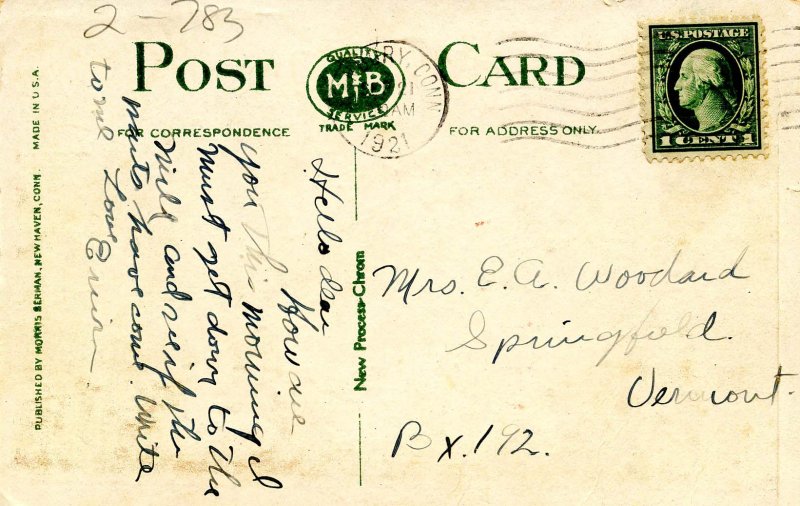 2-783
POST CARD
QUALITY
M B
SERVICE
TRADE MARK
FOR CORRESPONDENCE
FOR ADDRESS ONLY.
RY, CONN
AM
1921
U.S. POSTAGE
1 CENT 1
MADE IN U.S.A.
PUBLISHED BY MORRIS BERMAN, NEW HAVEN, CONN.
New Process-Chrom
Hello dear
How are
you This morning I
Must get down to the
Mill and see if the
have come. Write
to me Love
Mrs. E. A. Woodard
Springfield.
Vermont.
Bx. 192.